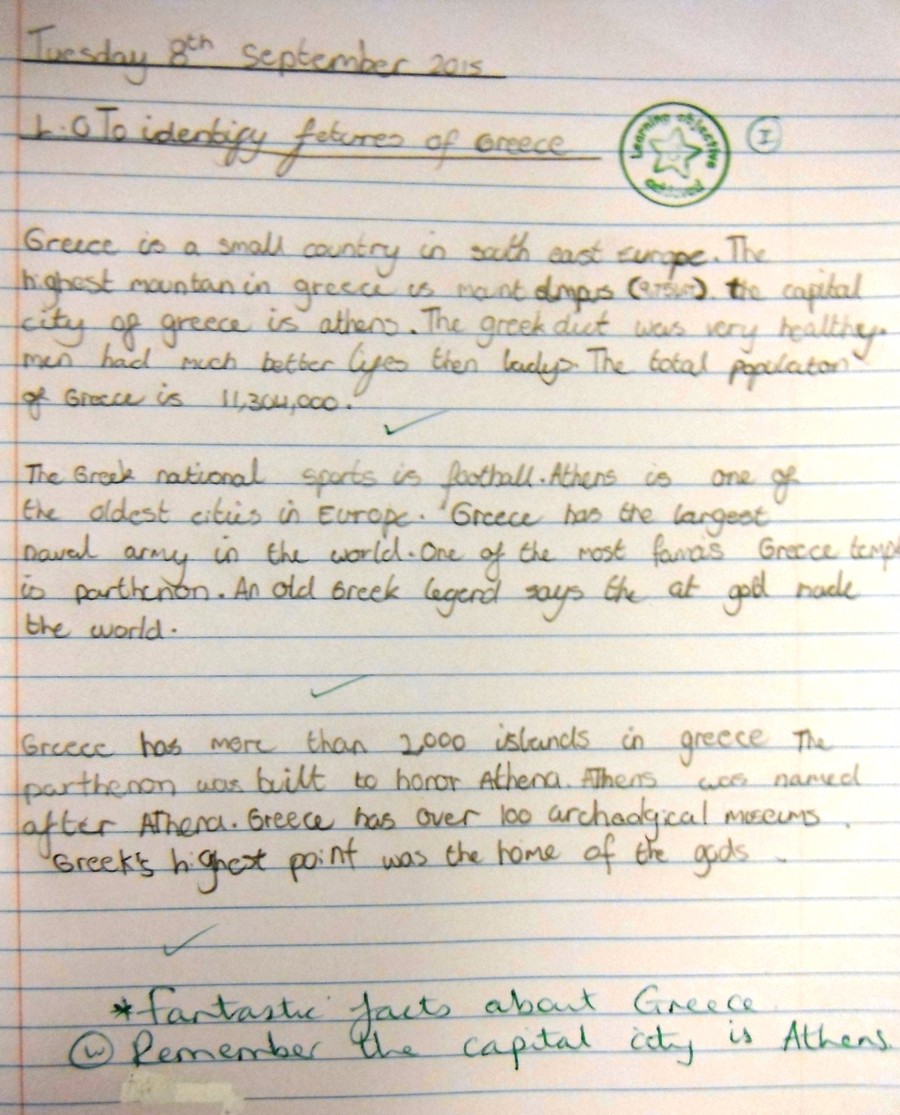 Tuesday 8th September 2015
L.O To identify fetures of Greece
Learning objective achieved
I
Greece is a small country in south east Europe. The
highest mountan in greece is mount olmpus the capital
city of greece is athens. The greek diet was very healthy.
men had much better lifes then ladys. The total populaton
of Greece is 11,304,000.
The Greek national sports is football. Athens is one of
the oldest cities in Europe. Greece has the largest
naval army in the world. One of the most famos Greece templ
is parthenon. An old Greek legend says the at god made
the world.
Greece has more than 2,000 islands in greece The
parthenon was built to honor Athena. Athens was named
after Athena. Greece has over 100 archaolgical moseums.
Greek's highest point was the home of the gods.
*Fantastic facts about Greece
W Remember the capital city is Athens.